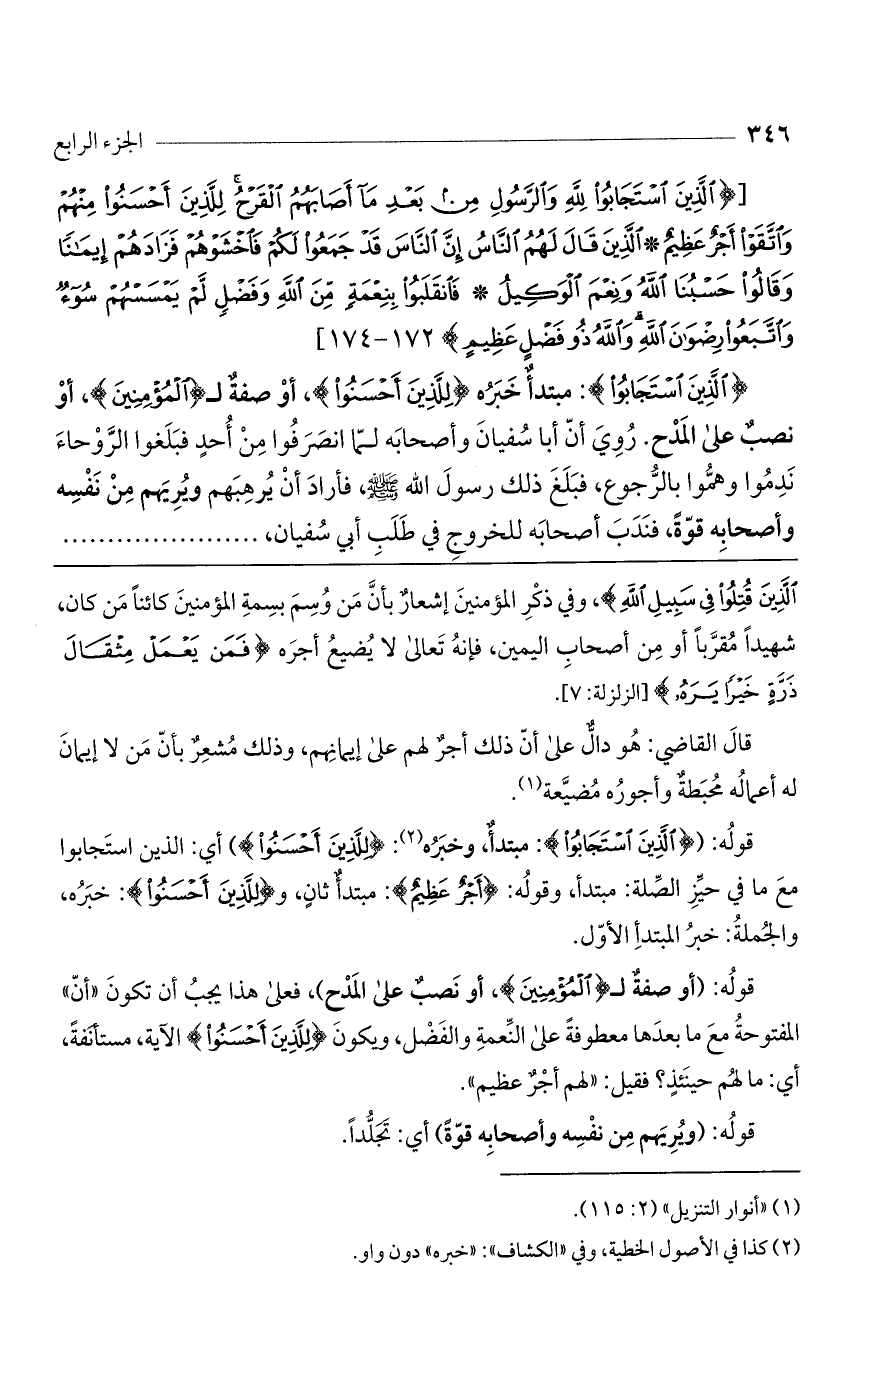 ٣٤٦ الجزء الرابع
[﴿ٱلَّذِينَ ٱسْتَجَابُوا۟ لِلَّهِ وَٱلرَّسُولِ مِنۢ بَعْدِ مَآ أَصَابَهُمُ ٱلْقَرْحُ ۚ لِلَّذِينَ أَحْسَنُوا۟ مِنْهُمْ
وَٱتَّقَوْا۟ أَجْرٌ عَظِيمٌ * ٱلَّذِينَ قَالَ لَهُمُ ٱلنَّاسُ إِنَّ ٱلنَّاسَ قَدْ جَمَعُوا۟ لَكُمْ فَٱخْشَوْهُمْ فَزَادَهُمْ إِيمَـٰنًا
وَقَالُوا۟ حَسْبُنَا ٱللَّهُ وَنِعْمَ ٱلْوَكِيلُ * فَٱنقَلَبُوا۟ بِنِعْمَةٍ مِّنَ ٱللَّهِ وَفَضْلٍ لَّمْ يَمْسَسْهُمْ سُوٓءٌ
وَٱتَّبَعُوا۟ رِضْوَٰنَ ٱللَّهِ ۗ وَٱللَّهُ ذُو فَضْلٍ عَظِيمٍ﴾ ١٧٢-١٧٤]
﴿ٱلَّذِينَ ٱسْتَجَابُوا۟﴾: مبتدأٌ خَبَرُه ﴿لِلَّذِينَ أَحْسَنُوا۟﴾، أوْ صفةٌ لـ﴿ٱلْمُؤْمِنِينَ﴾، أوْ
نصبٌ علىٰ المَدْح. رُوِيَ أنّ أبا سُفيانَ وأصحابَه لـمّا انصَرَفُوا مِنْ أُحدٍ فبَلَغوا الرَّوْحاءَ
نَدِمُوا وهمُّوا بالرُّجوع، فبَلَغَ ذلك رسولَ الله ﷺ، فأرادَ أنْ يُرهِبَهم ويُرِيَهم مِنْ نَفْسِه
وأصحابِه قوّةً، فنَدَبَ أصحابَه للخروجِ في طَلَبِ أبي سُفيان، .....................
ٱلَّذِينَ قُتِلُوا۟ فِى سَبِيلِ ٱللَّهِ﴾، وفي ذكْرِ المؤمنينَ إشعارٌ بأنَّ مَن وُسِمَ بسِمةِ المؤمنينَ كائناً مَن كان،
شهيداً مُقرَّباً أو مِن أصحابِ اليمين، فإنهُ تَعالىٰ لا يُضيعُ أجرَه ﴿فَمَن يَعْمَلْ مِثْقَالَ
ذَرَّةٍ خَيْرًا يَرَهُۥ﴾ [الزلزلة: ٧].
قالَ القاضي: هُو دالٌّ علىٰ أنّ ذلك أجرٌ لهم علىٰ إيمانِهم، وذلك مُشعِرٌ بأنّ مَن لا إيمانَ
له أعمالُه مُحبَطةٌ وأجورُه مُضيَّعة(١).
قولُه: (﴿ٱلَّذِينَ ٱسْتَجَابُوا۟﴾: مبتدأٌ، وخبَرُه(٢): ﴿لِلَّذِينَ أَحْسَنُوا۟﴾) أي: الذين استَجابوا
معَ ما في حيِّزِ الصِّلة: مبتدأ، وقولُه: ﴿أَجْرٌ عَظِيمٌ﴾: مبتدأٌ ثانٍ، و﴿لِلَّذِينَ أَحْسَنُوا۟﴾: خبَرُه،
والجُملةُ: خبرُ المبتدأِ الأوّل.
قولُه: (أو صفةٌ لـ﴿ٱلْمُؤْمِنِينَ﴾، أو نَصبٌ علىٰ المَدْح)، فعلىٰ هذا يجبُ أن تكونَ «أنّ»
المفتوحةُ معَ ما بعدَها معطوفةً علىٰ النِّعمةِ والفَضْل، ويكونَ ﴿لِلَّذِينَ أَحْسَنُوا۟﴾ الآية، مستأنَفةً،
أي: ما لهُم حينَئذٍ؟ فقيل: «لهم أجْرٌ عظيم».
قولُه: (ويُرِيَهم مِن نفْسِه وأصحابِه قوّةً) أي: تَجَلُّداً.
(١) «أنوار التنزيل» (٢: ١١٥).
(٢) كذا في الأصول الخطية، وفي «الكشاف»: «خبره» دون واو.